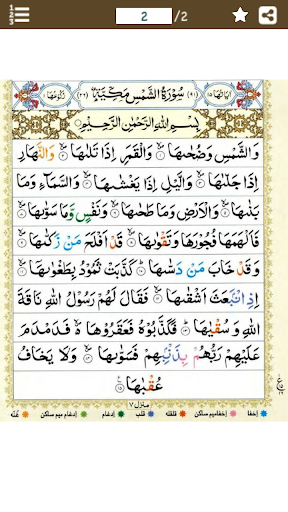 2 /2
اٰیاتہا ۱۵ (۹۱) سُوْرَةُ الشَّمْسِ مَكِّيَّةٌ (۲۶) رکوعہا ۱
بِسْمِ اللّٰهِ الرَّحْمٰنِ الرَّحِيْمِ
وَالشَّمْسِ وَضُحٰىهَا ۝۱ وَالْقَمَرِ اِذَا تَلٰىهَا ۝۲ وَالنَّهَارِ
اِذَا جَلّٰىهَا ۝۳ وَالَّيْلِ اِذَا يَغْشٰىهَا ۝۴ وَالسَّمَآءِ وَمَا
بَنٰىهَا ۝۵ وَالْاَرْضِ وَمَا طَحٰىهَا ۝۶ وَنَفْسٍ وَّمَا سَوّٰىهَا ۝۷
فَاَلْهَمَهَا فُجُوْرَهَا وَتَقْوٰىهَا ۝۸ قَدْ اَفْلَحَ مَنْ زَكّٰىهَا ۝۹
وَقَدْ خَابَ مَنْ دَسّٰىهَا ۝۱۰ كَذَّبَتْ ثَمُوْدُ بِطَغْوٰىهَا ۝۱۱
اِذِ انْۢبَعَثَ اَشْقٰىهَا ۝۱۲ فَقَالَ لَهُمْ رَسُوْلُ اللّٰهِ نَاقَةَ
اللّٰهِ وَسُقْيٰهَا ۝۱۳ فَكَذَّبُوْهُ فَعَقَرُوْهَا فَدَمْدَمَ
عَلَيْهِمْ رَبُّهُمْ بِذَنْۢبِهِمْ فَسَوّٰىهَا ۝۱۴ وَلَا يَخَافُ
عُقْبٰهَا ۝۱۵
منزل ۷
اخفا اخفامیم ساکن قلقلہ قلب ادغام ادغام میم ساکن غنّہ